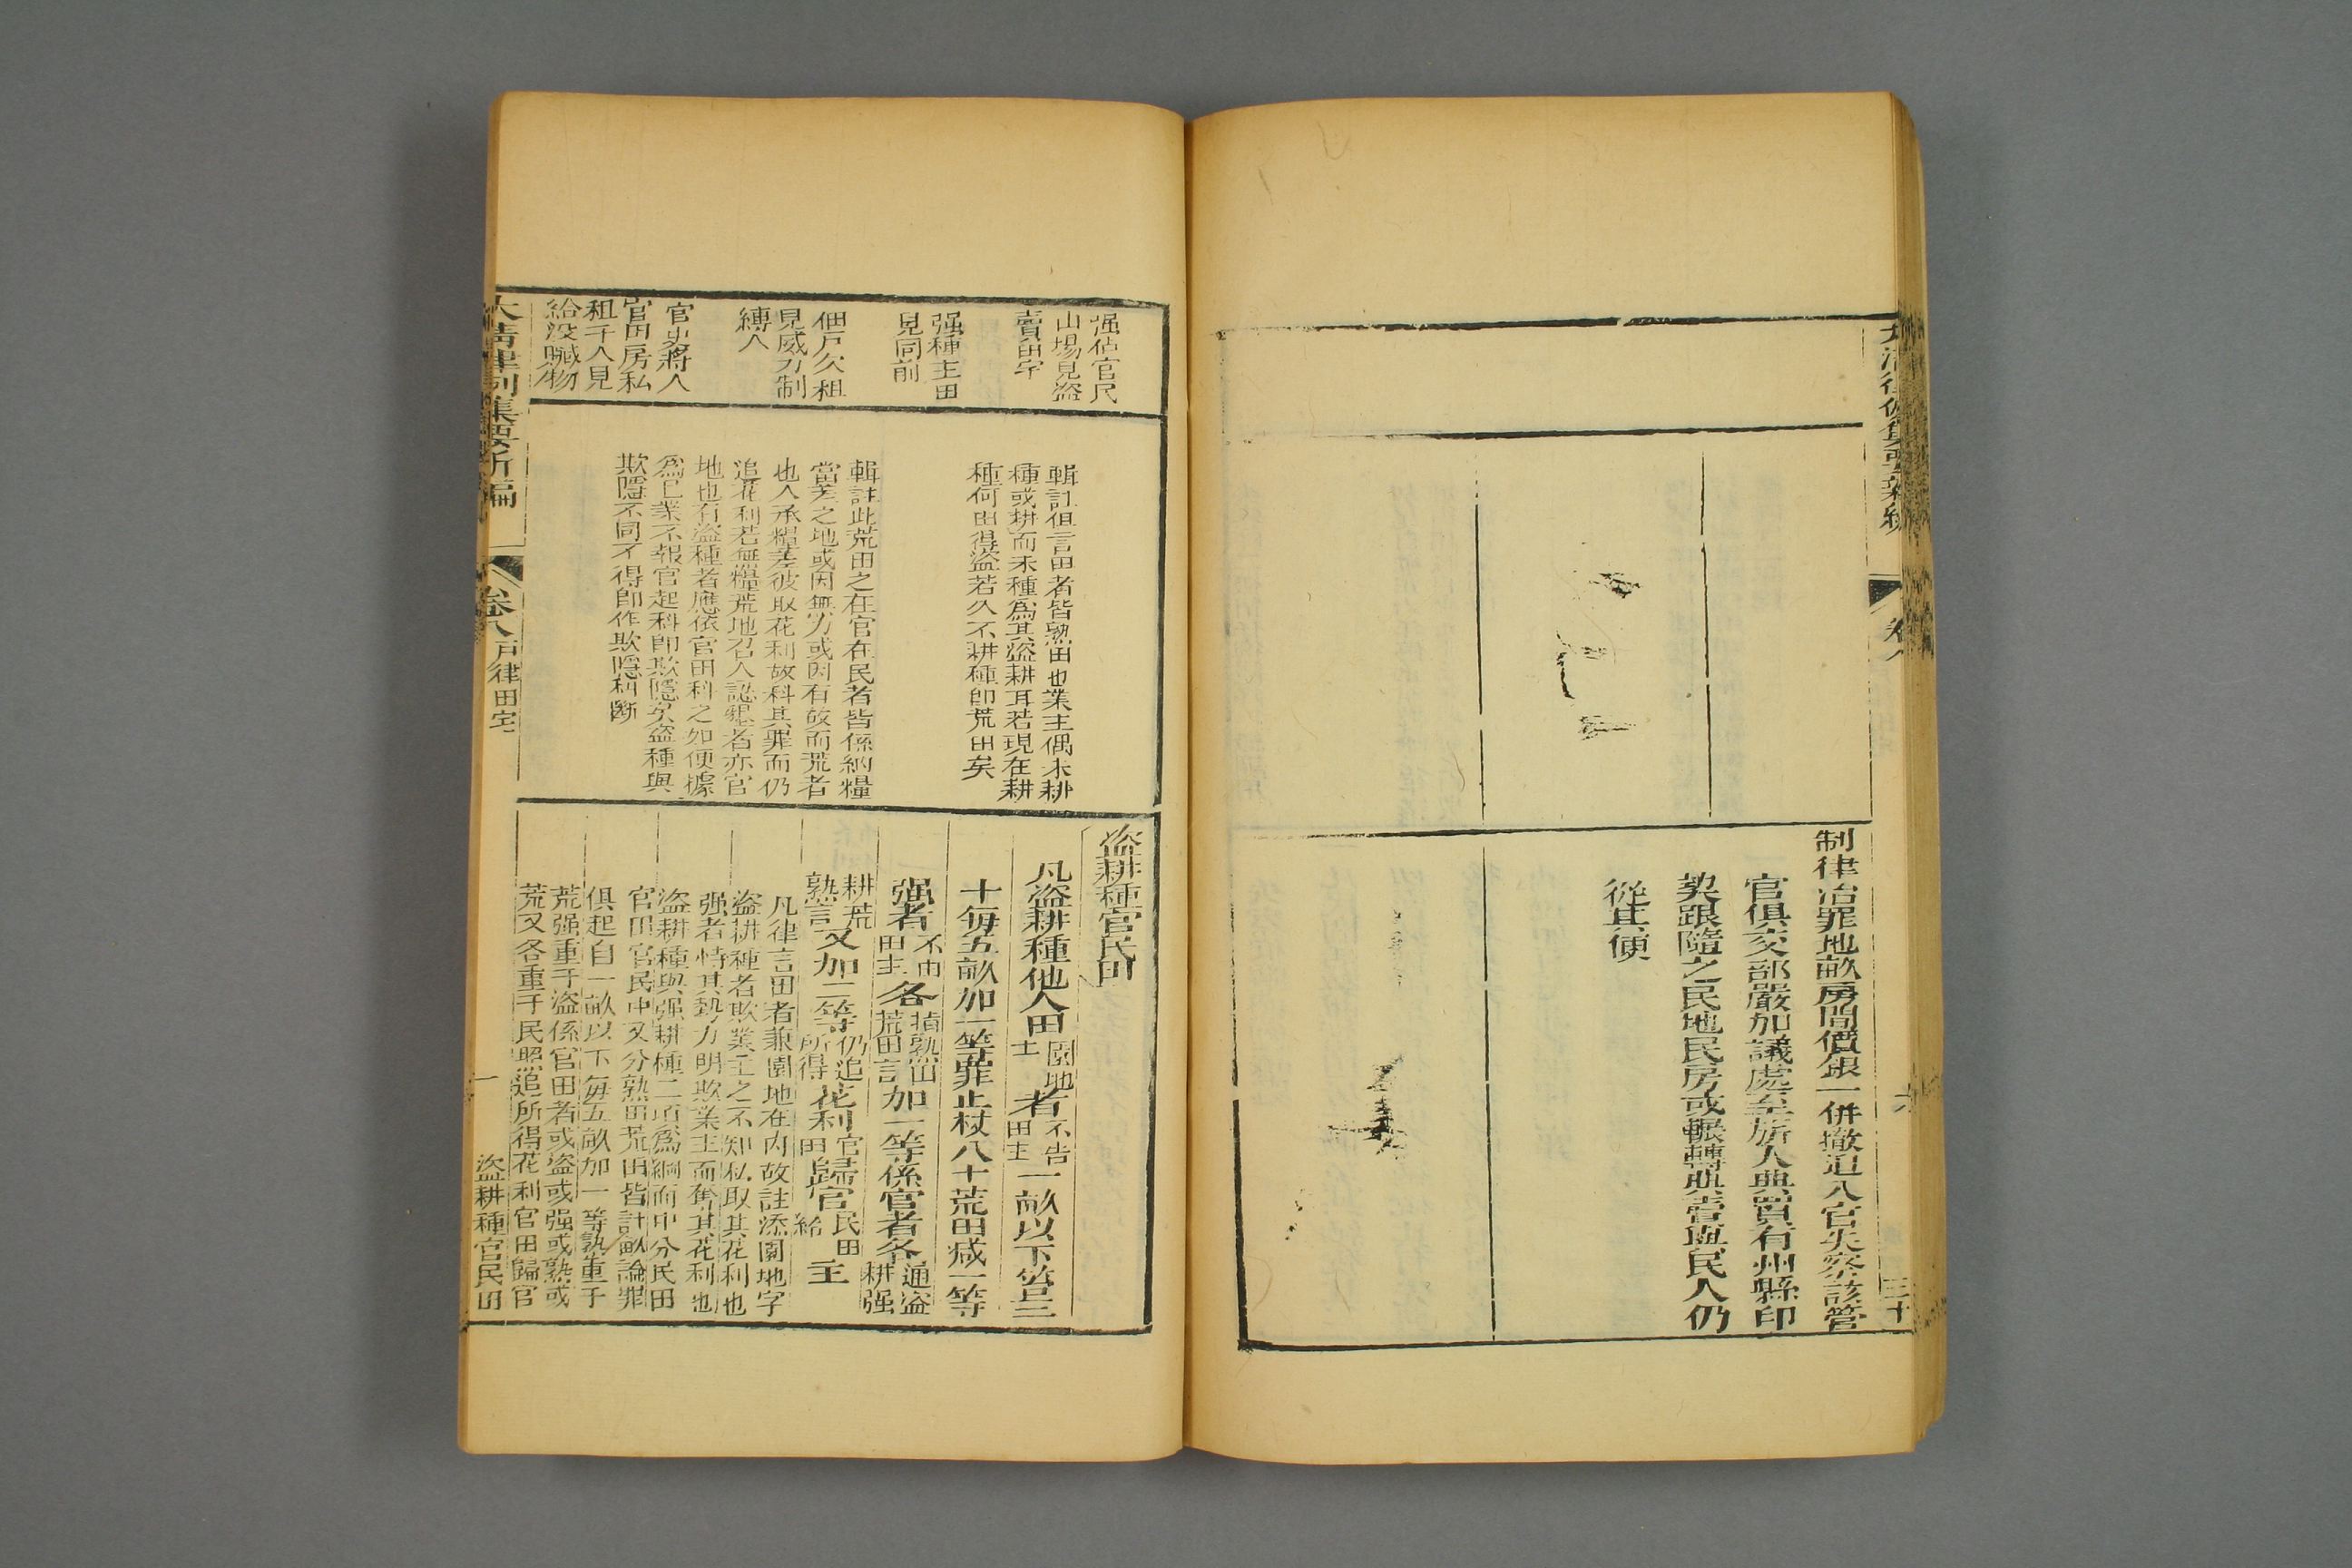 大清律例集要新編
卷八
三十
制律治罪地畝房間價銀一併撤追入官失察該管
官俱交部嚴加議處至旂人典買有州縣印
契跟隨之民地民房或輾轉典賣與民人仍
從其便
强佔官民
山場見盜
賣田宅
强種主田
見同前
佃戶欠租
見威力制
縛人
官吏將入
官田房私
租于人見
給沒贓物
輯註但言田者皆熟田也業主偶未耕
種或耕而未種爲其盜耕耳若現在耕
種何由得盜若久不耕種卽荒田矣
輯註此荒田之在官在民者皆係納糧
當差之地或因無力或因有故而荒者
也人承糧差彼取花利故科其罪而仍
追花利若無糧荒地召人認墾者亦官
地也有盜種者應依官田科之如便據
爲已業不報官起科卽欺隱矣盜種與
欺隱不同不得卽作欺隱科斷
盜耕種官民田
凡盜耕種他人田園地土者不告田主一畝以下笞三
十每五畝加一等罪止杖八十荒田减一等
强者不由田主各指熟田荒田言加一等係官者各通盜耕强
耕荒熟言又加二等仍追所得花利官田歸官民田給主
凡律言田者兼園地在内故註添園地字
盜耕種者欺業主之不知私取其花利也
强者恃其勢力明欺業主而奪其花利也
盜耕種與强耕種二項爲綱而中分民田
官田官民中又分熟田荒田皆計畝論罪
俱起自一畝以下每五畝加一等熟重于
荒强重于盜係官田者或盜或强或熟或
荒又各重于民照追所得花利官田歸官
大清律例集要新編
卷八戶律田宅
一
盜耕種官民田